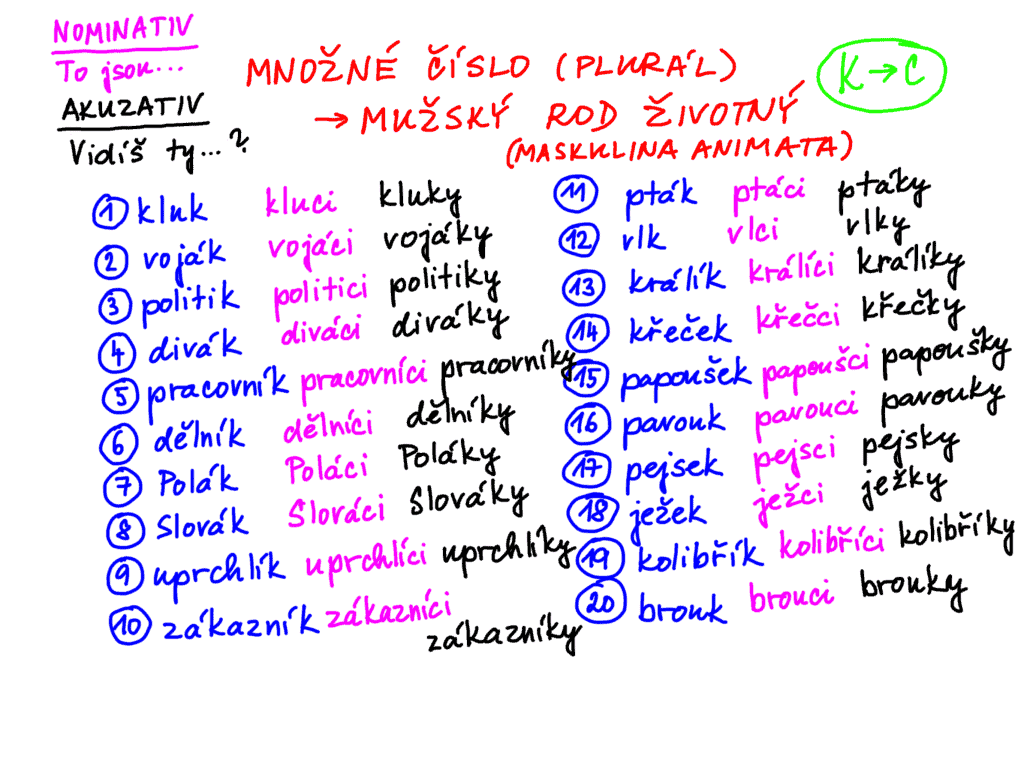 NOMINATIV
To jsou...
AKUZATIV
Vidíš ty...?
MNOŽNÉ ČÍSLO (PLURÁL)
→ MUŽSKÝ ROD ŽIVOTNÝ
(MASKULINA ANIMATA)
K → C
1 kluk kluci kluky
2 voják vojáci vojáky
3 politik politici politiky
4 divák diváci diváky
5 pracovník pracovníci pracovníky
6 dělník dělníci dělníky
7 Polák Poláci Poláky
8 Slovák Slováci Slováky
9 uprchlík uprchlíci uprchlíky
10 zákazník zákazníci zákazníky
11 pták ptáci ptáky
12 vlk vlci vlky
13 králík králíci králíky
14 křeček křečci křečky
15 papoušek papoušci papoušky
16 pavouk pavouci pavouky
17 pejsek pejsci pejsky
18 ježek ježci ježky
19 kolibřík kolibříci kolibříky
20 brouk brouci brouky